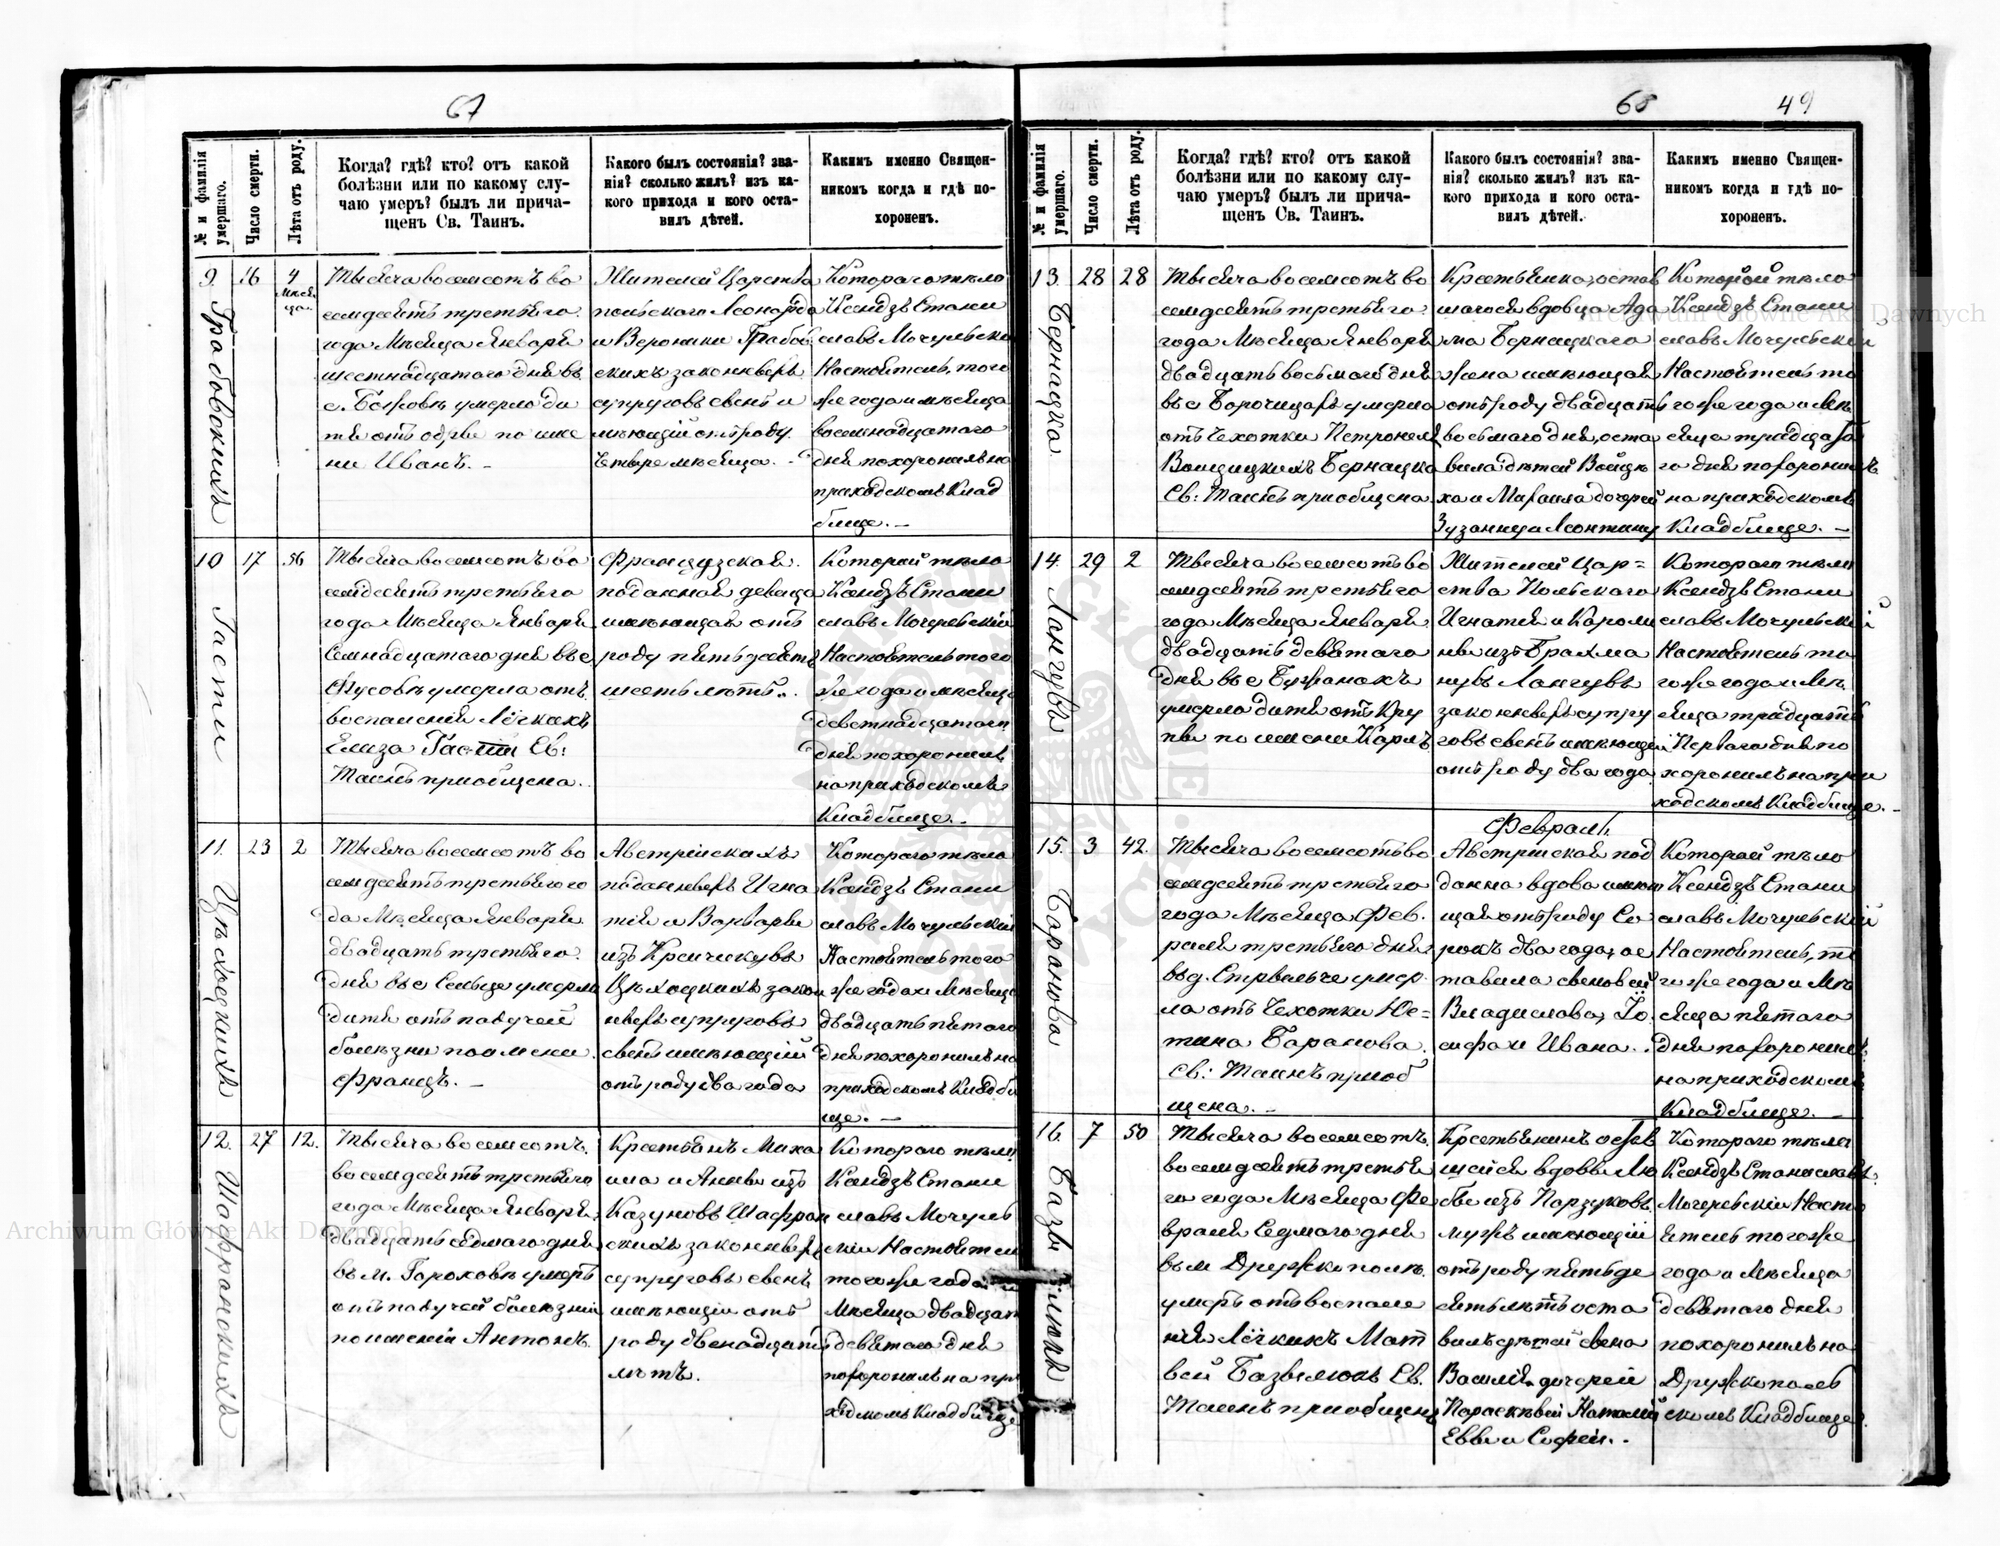 67
№ и фамилія умершаго.
Число смерти.
Лѣта отъ роду.
Когда? гдѣ? кто? отъ какой
болѣзни или по какому слу-
чаю умеръ? былъ ли прича-
щенъ Св. Таинъ.
Какого былъ состоянія? зва-
нія? сколько жилъ? изъ ка-
кого прихода и кого оста-
вилъ дѣтей.
Какимъ именно Священ-
никомъ когда и гдѣ по-
хороненъ.
9.
Грабовскихъ
16
4
Мѣся
ца
Тысяча восемсотъ во
семдесятъ третьяго
года Мѣсяца Января
шестнадцатаго дня въ
умерло ди
тя отъ по име
ни Иванъ. -
Жителей Царства
польскаго Леонарда
и Вероники Грабов
скихъ законныхъ
супруговъ сынъ и
мѣющій отъ роду
четыре мѣсяца. -
Котораго тѣло
Ксендзъ Стани
славъ Мочульскій
Настоятель того
же года и мѣсяца
восемнадцатаго
дня похоронилъ на
приходскомъ Клад
бище. -
10
Гасти
17
56
Тысяча восемсотъ во
семдесятъ третьяго
года Мѣсяца Января
Семнадцатаго дня въ с
умерла отъ
воспаленія Лёгкихъ
Елиза Гасти Св:
Таинъ приобщена.
Французская
поданная девица
имѣющая отъ
роду пятьдесятъ
шесть лѣтъ.
Которой тѣло
Ксендзъ Стани
славъ Мочульскій
Настоятель того
же года и мѣсяца
девятнадцатаго
дня похоронилъ
на приходскомъ
Кладбище. -
11.
23
2
Тысяча восемсотъ во
семдесятъ третьяго го
да Мѣсяца Января
двадцать третьяго
дня въ с Сельце умерло
дитя отъ падучей
болѣзни по имени
Францъ. -
Австрійскихъ
поданныхъ Игна
тія и Варвары
изъ
законн
ныхъ супруговъ
сынъ имѣющій
отъ роду два года
Котораго тѣло
Ксендзъ Стани
славъ Мочульскій
Настоятель того
же года и Мѣсяца
двадцать пятаго
дня похоронилъ на
приходскомъ Кладби
ще. -
12.
Шафранскихъ
27
12.
Тысяча восемсотъ
восемдесятъ третьяго
года Мѣсяца Января
двадцать седмаго дня
въ м. Гороховѣ умеръ
отъ падучей болѣзни
по имени Антонъ.
Крестьянъ Миха
ила и Анны изъ
Казуновъ Шафран
скихъ законныхъ
супруговъ сынъ
имѣющій отъ
роду двенадцать
лѣтъ.
Котораго тѣло
Ксендзъ Стани
славъ Мочуль
скій Настоятель
того же года и
Мѣсяца двадцать
девятаго дня
похоронилъ на при
ходскомъ Кладбище
68
49
№ и фамилія умершаго.
Число смерти.
Лѣта отъ роду.
Когда? гдѣ? кто? отъ какой
болѣзни или по какому слу-
чаю умеръ? былъ ли прича-
щенъ Св. Таинъ.
Какого былъ состоянія? зва-
нія? сколько жилъ? изъ ка-
кого прихода и кого оста-
вилъ дѣтей.
Какимъ именно Священ-
никомъ когда и гдѣ по-
хороненъ.
13.
Бернацка
28
28
Тысяча восемсотъ во
семдесятъ третьяго
года Мѣсяца Января
двадцать восьмаго дня
въ с Борочицахъ умерла
отъ чехотки Петронеля
Бернацка
Св: Таинъ приобщена
Крестьянка, остав
шагося вдовца Ада
ма Бернацкаго
жена имѣющая
отъ роду двадцать
восьмаго дня, оста
вила дѣтей Войцѣ
ха и Михаила дочерей
Зузанну и Леонтину
Которой тѣло
Ксендзъ Стани
славъ Мочульскій
Настоятель то
го же года и Мѣ
сяца тридцата
го дня похоронилъ
на приходскомъ
Кладбище. -
14.
Лангувъ
29
2
Тысяча восемсотъ во
семдесятъ третьяго
года Мѣсяца Января
двадцать девятаго
дня въ с Бужанахъ
умерло дитя отъ Кру
пы по имени Карлъ
Жителей Цар=
ства Польскаго
Игнатія и Кароли
ны изъ
Лангувъ
законныхъ супру
говъ сынъ имѣющій
отъ роду два года
Котораго тѣло
Ксендзъ Стани
славъ Мочульскій
Настоятель то
го же года и Мѣ
сяца тридцать
Перваго дня по
хоронилъ на при
ходскомъ Кладбище. -
Февраль
15.
Баранова
3
42
Тысяча восемсотъ во
семдесятъ третьяго
года Мѣсяца Фев.
раля третьяго дня
въ д. умер
ла отъ чехотки Юс=
тина Баранова.
Св: Таинъ приоб
щена. -
Австрійская под
данна вдова имею
щая отъ роду Со
рокъ два года, ос
тавила сыновей
Владислава, Іо
сифа и Ивана.
Которой тѣло
Ксендзъ Стани
славъ Мочульскій
Настоятель, то
го же года и Мѣ
сяца пятаго
дня похоронилъ
на приходскомъ
Кладбище. -
16.
Базылюкъ
7
50
Тысяча восемсотъ
восемдесятъ третья
го года Мѣсяца Фе
враля Седмаго дня
въ м Дружкополѣ
умеръ отъ воспале
нія Лёгкихъ Мат
вей Базылюкъ Св.
Таинъ приобщенъ
Крестьянинъ остав
шейся вдовы Лю
бы изъ
мужъ имѣющій
отъ роду пятьде
сятъ лѣтъ оста
вилъ дѣтей сына
Василія дочерей
Параскевіи Наталіи
Еввы и Софіи. -
Котораго тѣло
Ксендзъ Станиславъ
Мочульскій Насто
ятель того же
года и Мѣсяца
девятаго дня
похоронилъ на
Дружкополь
скомъ Кладбище.
Archiwum Główne Akt Dawnych
Archiwum Główne Akt Dawnych